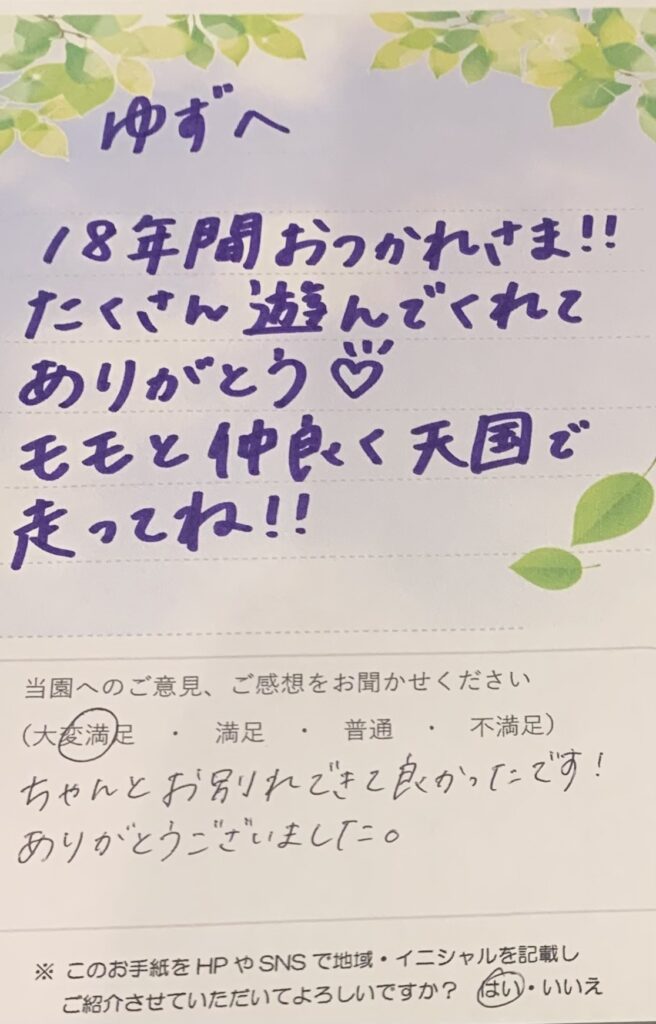 ゆずへ
18年間おつかれさま!!
たくさん遊んでくれて
ありがとう♡
モモと仲良く天国で
走ってね!!
当園へのご意見、ご感想をお聞かせください
(大変満足 ・ 満足 ・ 普通 ・ 不満足)
ちゃんとお別れできて良かったです!
ありがとうございました。
※ このお手紙をHPやSNSで地域・イニシャルを記載し
ご紹介させていただいてよろしいですか? はい・いいえ